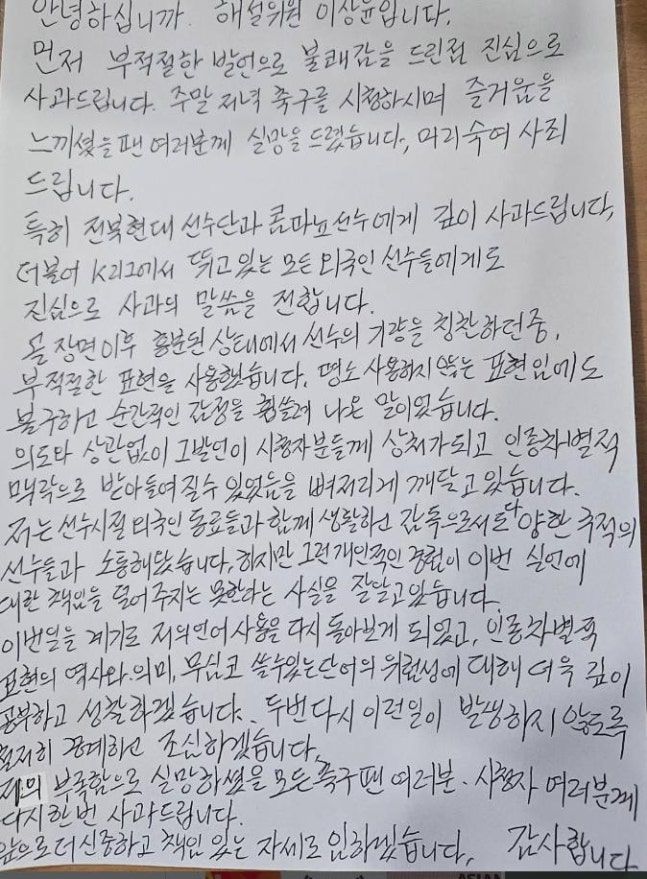 안녕하십니까. 해설위원 이상윤입니다.
먼저 부적절한 발언으로 불쾌감을 드린점 진심으로
사과드립니다. 주말 저녁 축구를 시청하시며 즐거움을
느끼셨을 팬 여러분께 실망을 드렸습니다, 머리숙여 사죄
드립니다.
특히 전북현대 선수단과 콤파뇨선수에게 깊이 사과드립니다,
더불어 K리그에서 뛰고 있는 모든 외국인 선수들에게도
진심으로 사과의 말씀을 전합니다.
골 장면이후 흥분된 상태에서 선수의 기량을 칭찬하던중,
부적절한 표현을 사용했습니다. 평소 사용하지 않는 표현임에도
불구하고 순간적인 감정을 휩쓸려 나온 말이었습니다.
의도와 상관없이 그발언이 시청자분들께 상처가되고 인종차별적
맥락으로 받아들여질수 있었음을 뼈저리게 깨닫고 있습니다.
저는 선수시절 외국인 동료들과 함께 생활하고 감독으로서도 다양한 국적의
선수들과 소통해왔습니다, 하지만 그런개인적인 경험이 이번 실언에
대한 책임을 덜어 주지는 못한다는 사실을 잘알고있습니다.
이번일을 계기로 저의언어 사용을 다시 돌아보게 되었고, 인종차별적
표현의 역사와 의미, 무심코 쓸수있는단어의 위험성에 대해 더욱 깊이
공부하고 성찰하겠습니다. 두번다시 이런일이 발생하지 않도록
철저히 경계하고 조심하겠습니다,
저의 부족함으로 실망하셨을 모든축구팬 여러분. 시청자 여러분께
다시한번 사과드립니다.
앞으로더신중하고 책임 있는 자세로 임하겠습니다, 감사합니다